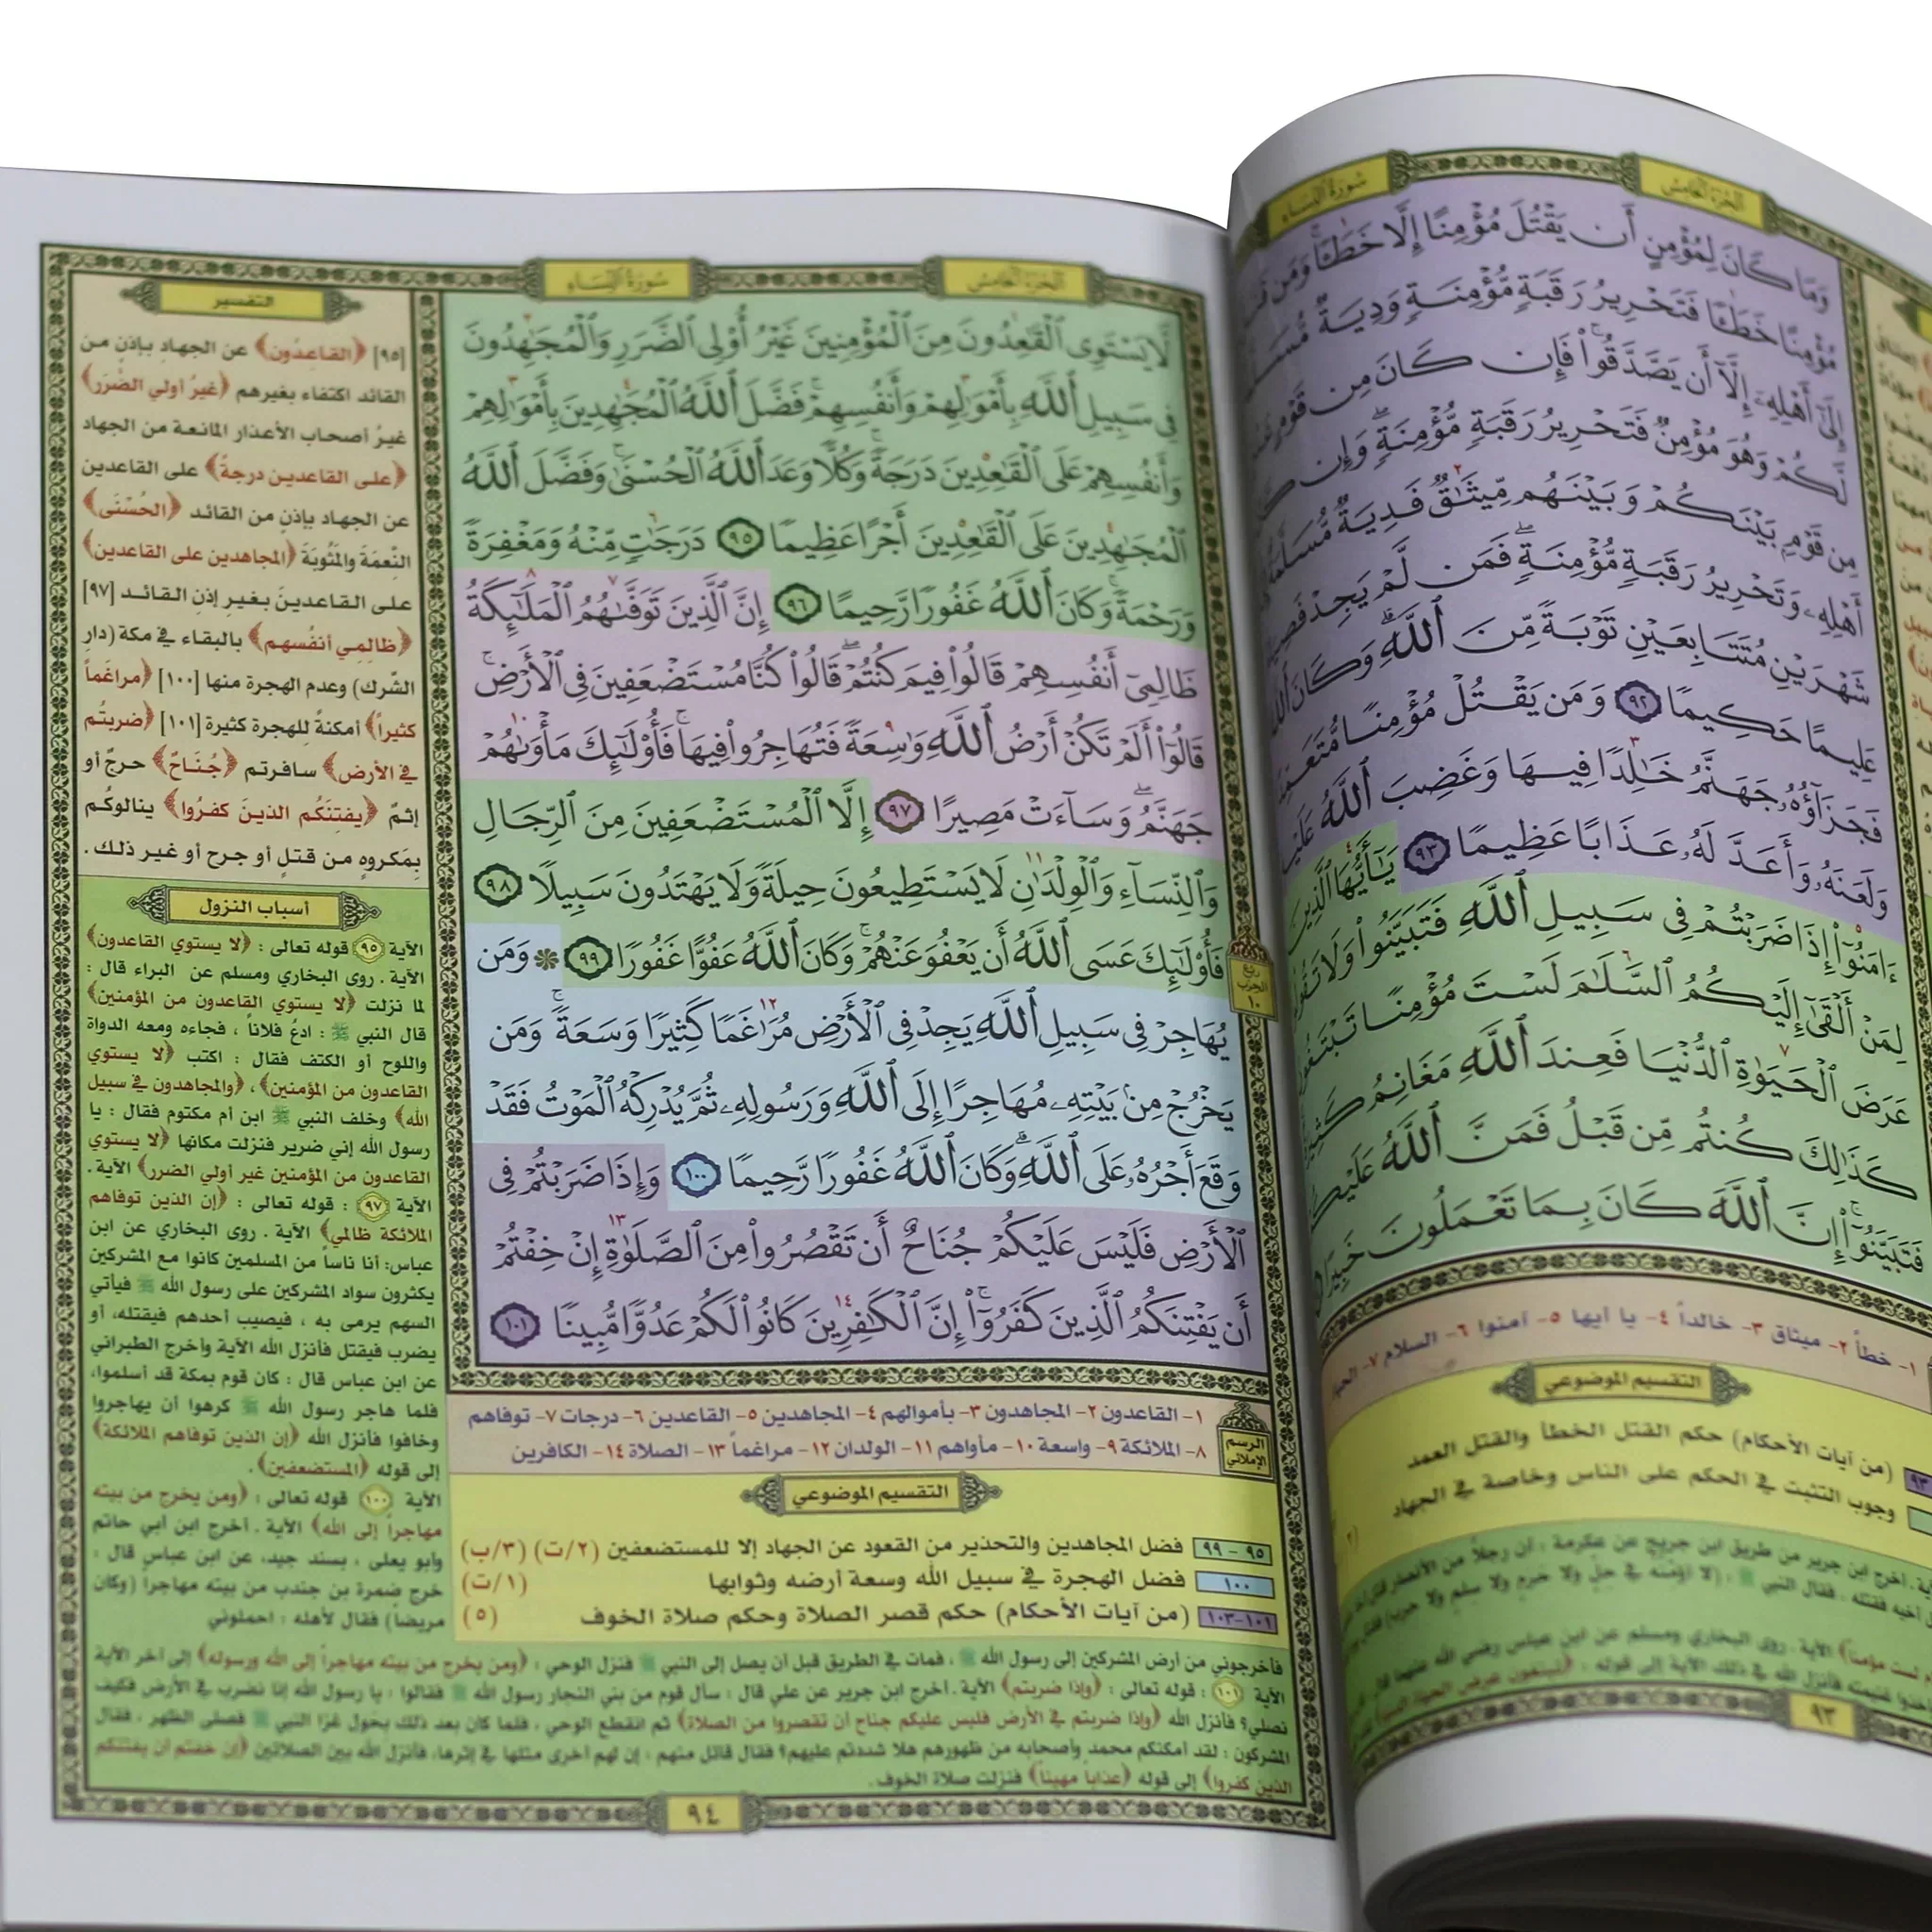 الجزء الخامس
سورة النساء
وَمَا كَانَ لِمُؤْمِنٍ أَن يَقْتُلَ مُؤْمِنًا إِلَّا خَطَـًٔا وَمَن قَتَلَ
مُؤْمِنًا خَطَـًٔا فَتَحْرِيرُ رَقَبَةٍ مُّؤْمِنَةٍ وَدِيَةٌ
إِلَىٰٓ أَهْلِهِۦٓ إِلَّآ أَن يَصَّدَّقُوا۟ فَإِن كَانَ مِن قَوْمٍ
لَّكُمْ وَهُوَ مُؤْمِنٌ فَتَحْرِيرُ رَقَبَةٍ مُّؤْمِنَةٍ وَإِن
مِن قَوْمٍۭ بَيْنَكُمْ وَبَيْنَهُم مِّيثَـٰقٌ فَدِيَةٌ مُّسَلَّمَةٌ
أَهْلِهِۦ وَتَحْرِيرُ رَقَبَةٍ مُّؤْمِنَةٍ فَمَن لَّمْ يَجِدْ
شَهْرَيْنِ مُتَتَابِعَيْنِ تَوْبَةً مِّنَ ٱللَّهِ وَكَانَ
عَلِيمًا حَكِيمًا ٩٢ وَمَن يَقْتُلْ مُؤْمِنًا
فَجَزَآؤُهُۥ جَهَنَّمُ خَـٰلِدًا فِيهَا وَغَضِبَ ٱللَّهُ
وَلَعَنَهُۥ وَأَعَدَّ لَهُۥ عَذَابًا عَظِيمًا ٩٣ يَـٰٓأَيُّهَا ٱلَّذِينَ
ءَامَنُوٓا۟ إِذَا ضَرَبْتُمْ فِى سَبِيلِ ٱللَّهِ فَتَبَيَّنُوا۟ وَلَا
لِمَنْ أَلْقَىٰٓ إِلَيْكُمُ ٱلسَّلَـٰمَ لَسْتَ مُؤْمِنًا
عَرَضَ ٱلْحَيَوٰةِ ٱلدُّنْيَا فَعِندَ ٱللَّهِ مَغَانِمُ
كَذَٰلِكَ كُنتُم مِّن قَبْلُ فَمَنَّ ٱللَّهُ
فَتَبَيَّنُوٓا۟ إِنَّ ٱللَّهَ كَانَ بِمَا تَعْمَلُونَ
١- خطأً ٢- ميثاق ٣- خالداً ٤- يا أيها ٥- آمنوا ٦- السلام ٧-
التقسيم الموضوعي
٩٣ (من آيات الأحكام) حكم القتل الخطأ والقتل العمد
وجوب التثبت في الحكم على الناس وخاصة في الجهاد
٩٣
الجزء الخامس
سورة النساء
لَّا يَسْتَوِى ٱلْقَـٰعِدُونَ مِنَ ٱلْمُؤْمِنِينَ غَيْرُ أُو۟لِى ٱلضَّرَرِ وَٱلْمُجَـٰهِدُونَ
فِى سَبِيلِ ٱللَّهِ بِأَمْوَٰلِهِمْ وَأَنفُسِهِمْ فَضَّلَ ٱللَّهُ ٱلْمُجَـٰهِدِينَ بِأَمْوَٰلِهِمْ
وَأَنفُسِهِمْ عَلَى ٱلْقَـٰعِدِينَ دَرَجَةً وَكُلًّا وَعَدَ ٱللَّهُ ٱلْحُسْنَىٰ وَفَضَّلَ ٱللَّهُ
ٱلْمُجَـٰهِدِينَ عَلَى ٱلْقَـٰعِدِينَ أَجْرًا عَظِيمًا ٩٥ دَرَجَـٰتٍ مِّنْهُ وَمَغْفِرَةً
وَرَحْمَةً وَكَانَ ٱللَّهُ غَفُورًا رَّحِيمًا ٩٦ إِنَّ ٱلَّذِينَ تَوَفَّىٰهُمُ ٱلْمَلَـٰٓئِكَةُ
ظَالِمِىٓ أَنفُسِهِمْ قَالُوا۟ فِيمَ كُنتُمْ قَالُوا۟ كُنَّا مُسْتَضْعَفِينَ فِى ٱلْأَرْضِ
قَالُوٓا۟ أَلَمْ تَكُنْ أَرْضُ ٱللَّهِ وَٰسِعَةً فَتُهَاجِرُوا۟ فِيهَا فَأُو۟لَـٰٓئِكَ مَأْوَىٰهُمْ
جَهَنَّمُ وَسَآءَتْ مَصِيرًا ٩٧ إِلَّا ٱلْمُسْتَضْعَفِينَ مِنَ ٱلرِّجَالِ
وَٱلنِّسَآءِ وَٱلْوِلْدَٰنِ لَا يَسْتَطِيعُونَ حِيلَةً وَلَا يَهْتَدُونَ سَبِيلًا ٩٨
فَأُو۟لَـٰٓئِكَ عَسَى ٱللَّهُ أَن يَعْفُوَ عَنْهُمْ وَكَانَ ٱللَّهُ عَفُوًّا غَفُورًا ٩٩ وَمَن
يُهَاجِرْ فِى سَبِيلِ ٱللَّهِ يَجِدْ فِى ٱلْأَرْضِ مُرَٰغَمًا كَثِيرًا وَسَعَةً وَمَن
يَخْرُجْ مِنۢ بَيْتِهِۦ مُهَاجِرًا إِلَى ٱللَّهِ وَرَسُولِهِۦ ثُمَّ يُدْرِكْهُ ٱلْمَوْتُ فَقَدْ
وَقَعَ أَجْرُهُۥ عَلَى ٱللَّهِ وَكَانَ ٱللَّهُ غَفُورًا رَّحِيمًا ١٠٠ وَإِذَا ضَرَبْتُمْ فِى
ٱلْأَرْضِ فَلَيْسَ عَلَيْكُمْ جُنَاحٌ أَن تَقْصُرُوا۟ مِنَ ٱلصَّلَوٰةِ إِنْ خِفْتُمْ
أَن يَفْتِنَكُمُ ٱلَّذِينَ كَفَرُوٓا۟ إِنَّ ٱلْكَـٰفِرِينَ كَانُوا۟ لَكُمْ عَدُوًّا مُّبِينًا ١٠١
ربع
الحزب
١٠
الرسم
الإملائي
١- القاعدون ٢- المجاهدون ٣- بأموالهم ٤- المجاهدين ٥- القاعدين ٦- درجات ٧- توفاهم
٨- الملائكة ٩- واسعة ١٠- مأواهم ١١- الولدان ١٢- مراغماً ١٣- الصلاة ١٤- الكافرين
التقسيم الموضوعي
٩٥ - ٩٩ فضل المجاهدين والتحذير من القعود عن الجهاد إلا للمستضعفين (٢/ت) (٣/ب)
١٠٠ فضل الهجرة في سبيل الله وسعة أرضه وثوابها (١/ت)
١٠١-١٠٣ (من آيات الأحكام) حكم قصر الصلاة وحكم صلاة الخوف (٥)
التفسير
[٩٥] ﴿القاعدُون﴾ عن الجهاد بإذن من
القائد اكتفاء بغيرهم ﴿غيرُ أولي الضَّرَر﴾
غيرُ أصحاب الأعذار المانعة من الجهاد
﴿على القاعدين درجةً﴾ على القاعدين
عن الجهاد بإذن من القائد ﴿الحُسْنَى﴾
النِّعمَة والمَثُوبَة ﴿المجاهدين على القاعدين﴾
على القاعدينَ بغيرِ إذنِ القائد [٩٧]
﴿ظالِمِي أنفُسهم﴾ بالبقاء في مكة (دارِ
الشّرك) وعدم الهجرة منها [١٠٠] ﴿مراغَماً
كثيراً﴾ أمكنةً للهجرة كثيرة [١٠١] ﴿ضربتُم
في الأرض﴾ سافرتم ﴿جُنَاحٌ﴾ حرجٌ أو
إثمٌ ﴿يفتِنَكُم الذينَ كفرُوا﴾ ينالوكُم
بِمَكروهٍ من قتلٍ أو جرح أو غير ذلك.
أسباب النزول
الآية ٩٥ قوله تعالى: ﴿لا يستوي القاعدون﴾
الآية. روى البخاري ومسلم عن البراء قال:
لما نزلت ﴿لا يستوي القاعدون من المؤمنين﴾
قال النبي ﷺ: ادعُ فلاناً، فجاءه ومعه الدواة
واللوح أو الكتف فقال: اكتب ﴿لا يستوي
القاعدون من المؤمنين﴾، ﴿والمجاهدون في سبيل
الله﴾ وخلف النبي ﷺ ابن أم مكتوم فقال: يا
رسول الله إني ضرير فنزلت مكانها ﴿لا يستوي
القاعدون من المؤمنين غير أولي الضرر﴾ الآية.
الآية ٩٧: قوله تعالى: ﴿إن الذين توفاهم
الملائكة ظالمي﴾ الآية. روى البخاري عن ابن
عباس: أنا ناساً من المسلمين كانوا مع المشركين
يكثرون سواد المشركين على رسول الله ﷺ فيأتي
السهم يرمى به، فيصيب أحدهم فيقتله، أو
يضرب فيقتل فأنزل الله الآية وأخرج الطبراني
عن ابن عباس قال: كان قوم بمكة قد أسلموا،
فلما هاجر رسول الله ﷺ كرهوا أن يهاجروا
وخافوا فأنزل الله ﴿إن الذين توفاهم الملائكة﴾
إلى قوله ﴿المستضعفين﴾.
الآية ١٠٠ قوله تعالى: ﴿ومن يخرج من بيته
مهاجراً إلى الله﴾ الآية. أخرج ابن أبي حاتم
وأبو يعلى، بسند جيد، عن ابن عباس قال:
خرج ضمرة بن جندب من بيته مهاجراً (وكان
مريضاً) فقال لأهله: احملوني
فأخرجوني من أرض المشركين إلى رسول الله ﷺ، فمات في الطريق قبل أن يصل إلى النبي ﷺ فنزل الوحي: ﴿ومن يخرج من بيته مهاجراً إلى الله ورسوله﴾ إلى آخر الآية
الآية ١٠١: قوله تعالى: ﴿وإذا ضربتم﴾ الآية. أخرج ابن جرير عن علي قال: سأل قوم من بني النجار رسول الله ﷺ فقالوا: يا رسول الله إنا نضرب في الأرض فكيف
نصلي؟ فأنزل الله ﴿وإذا ضربتم في الأرض فليس عليكم جناح أن تقصروا من الصلاة﴾ ثم انقطع الوحي، فلما كان بعد ذلك بحول غزا النبي ﷺ فصلى الظهر، فقال
المشركون: لقد أمكنكم محمد وأصحابه من ظهورهم هلا شددتم عليهم؟ فقال قائل منهم: إن لهم أخرى مثلها في إثرها، فأنزل الله بين الصلاتين ﴿إن خفتم أن يفتنكم
الذين كفروا﴾ إلى قوله ﴿عذاباً مهيناً﴾ فنزلت صلاة الخوف.
٩٤